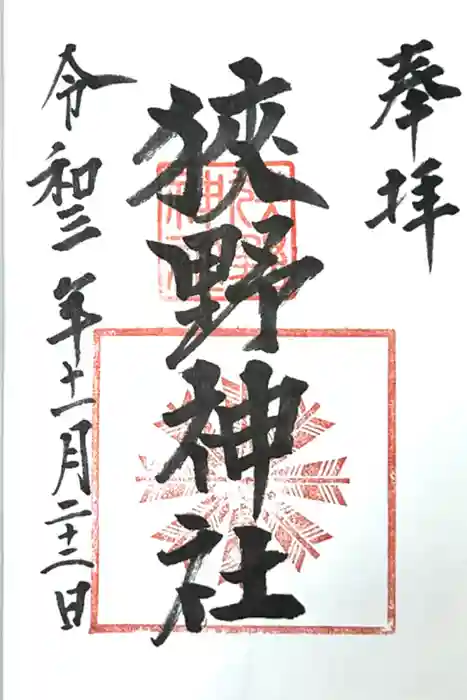 奉拝
狭野神社
令和三年十一月二十二日